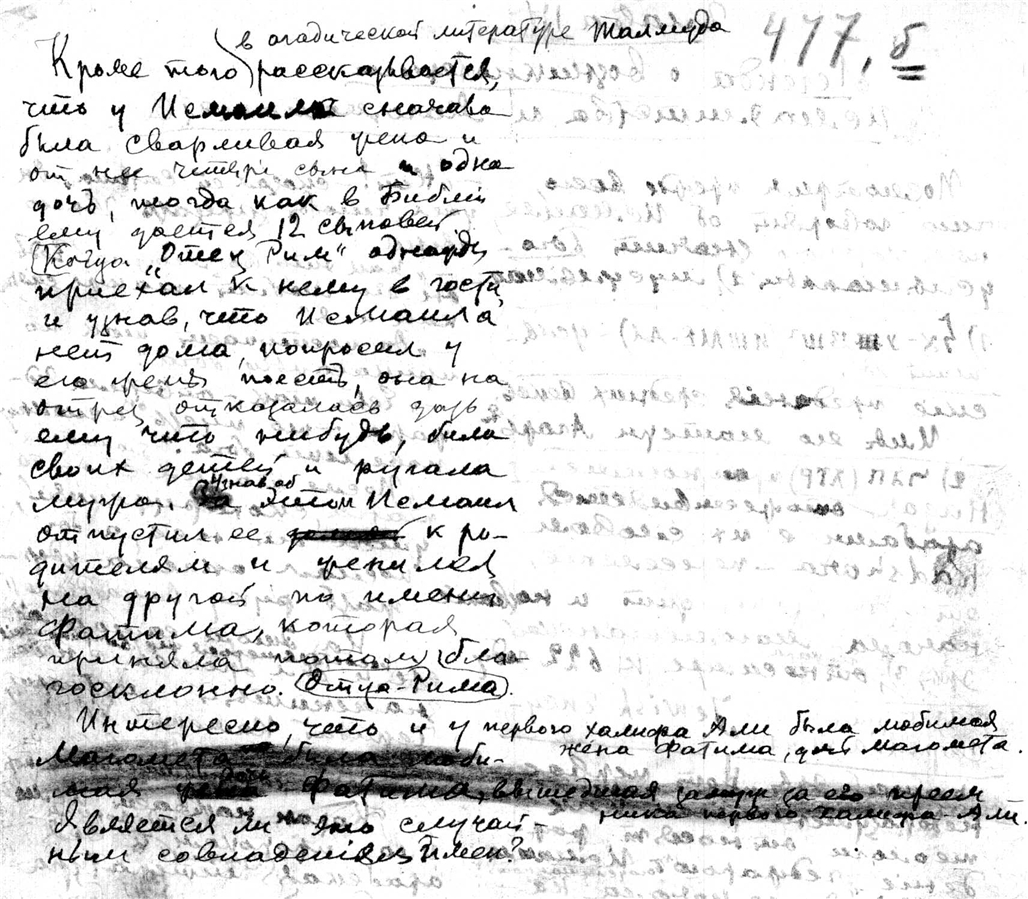 477, б
в агадической литературе Талмуда
Кроме того рассказывается,
что у Исмаила сначала
была сварливая жена и
от нее четыре сына и одна
дочь, тогда как в Библіи
ему дается 12 сыновей.
Когда „Отец Рим" однажды
приехал к нему в гости
и узнав, что Исмаила
нет дома, попросил у
его жены поесть, она на
отрез отказалась дать
ему что нибудь, била
своих детей и ругала
мужа. Узнав об этом Исмаил
отпустил ее к ро-
дителям и женился
на другой по имени
Фатима, которая
приняла потом бла-
госклонно Отца-Рима.
Интересно, что и у первого халифа Али была любимая
жена Фатима, дочь Магомета.
Магомета была люби-
мая дочь Фатима, вышедшая замуж за его преем
ника первого халифа Али.
Является ли это случай-
ным совпадением имен?